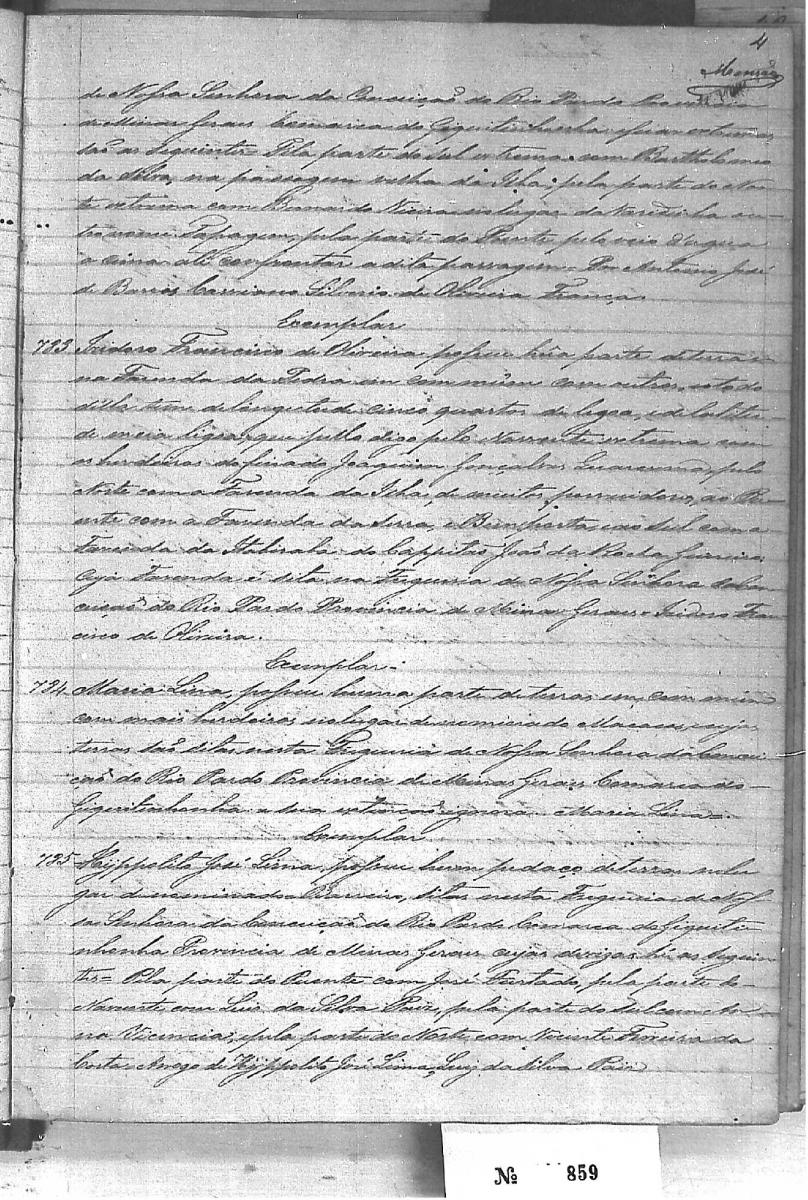 4
de Nossa Senhora da Conceição do Rio Pardo Provincia
de Minas Geraes Comarca do Gequitinhonha
são as seguintes Pela parte do Sul extrema com Bartholomeo
da Silva, na passagem velha da Ilha, pela parte do Nor-
te extrema com Bernardo Vieira no lugar da Varedinha
Tapagem, pela parte do Poente pelo veio d'agua
a cima até confrontar a dita passagem. Por Antonio José
de Barros Carriano Silverio de Oliveira França
Exemplar
783 Izidoro Francisco de Oliveira possue húa parte de terras
na Fazenda da Pedra em commum com outros,
tem de longitude cinco quartos de legoa, e de latitu-
de meia legoa, que pella digo pelo Nascente extrema com
os herdeiros do finado Joaquim Gonçalves pelo
Norte com a Fazenda da Ilha, de muitos possuidores, ao Po-
ente com a Fazenda da Serra, e Bemposta, e ao Sul com a
Fazenda da Itabiraba do Cappitão João da Rocha
Cuja Fazenda é sita na Freguesia de Nossa Senhora da Con-
ceição do Rio Pardo Provincia de Minas Geraes. Izidoro Fran-
cisco de Oliveira.
Exemplar.
784 Maria Lina, possue huma parte de terras em commum
com mais herdeiros no lugar denominado Macacos, cujas
terras são sitas nesta Freguesia de Nossa Senhora da Concei-
ção do Rio Pardo Provincia de Minas Geraes Comarca do
Gequitinhonha a sua extenção ignora. Maria Lina.
Exemplar
785 Hyppolito José Lima, possue hum pedaço de terras no lu-
gar denominado Barreiro, sitas nesta Freguesia de Nos-
sa Senhora da Conceição do Rio Pardo Comarca do Gequiti-
nhonha Provincia de Minas Geraes cujas devizas são as seguin-
tes = Pela parte do Poente com José Furtado, pela parte do
Nascente com Luis da Silva Paiz, pela parte do Sul com An-
na Vicencia, e pela parte do Norte com Vicente Ferreira da
Costa. Arogo de Hyppolito José Lima, Luiz da Silva Paiz
Nº 859